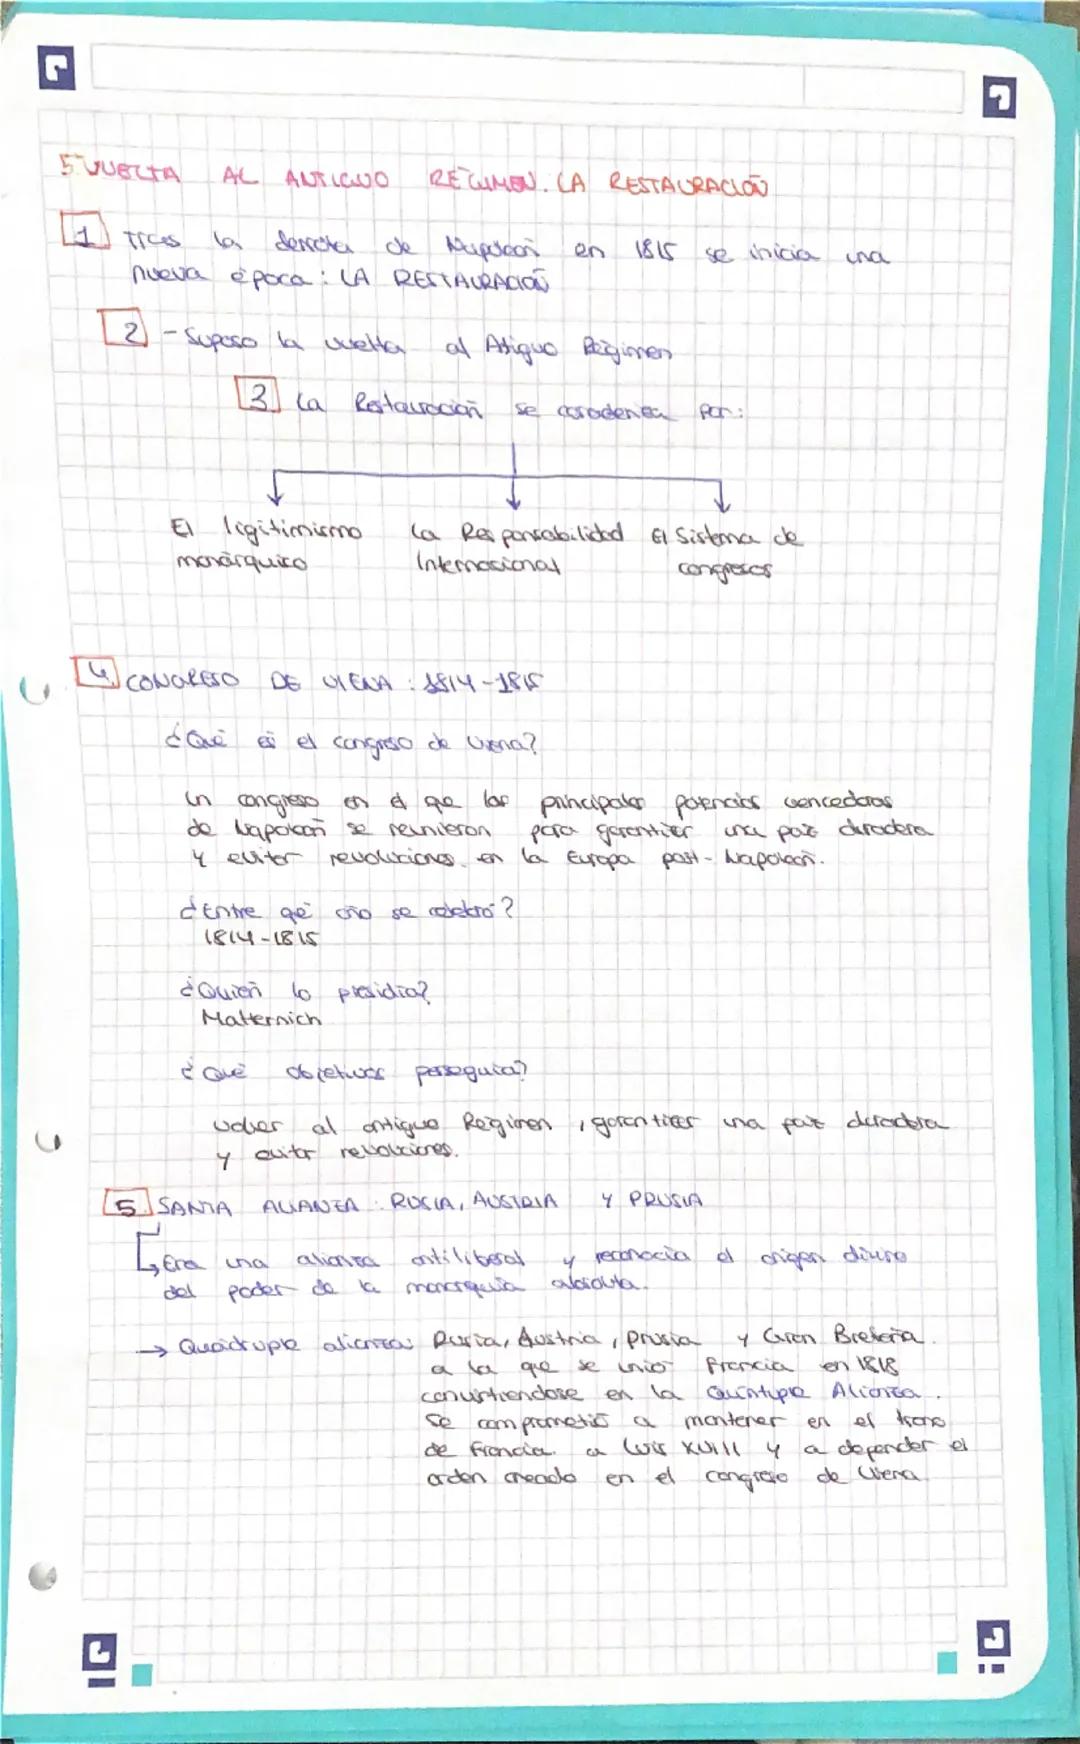 5 VUELTA AL ANTIGUO RÉGIMEN. LA RESTAURACIÓN
1 Tras la derrota de Napoleón en 1815 se inicia una
nueva época: LA RESTAURACIÓN
2 - Supuso la vuelta al Atiguo Régimen
3 La Restauración se caracteriza por:
El legitimismo
monárquico
La Responsabilidad
Internacional
El Sistema de
congresos
4. CONGRESO DE VIENA: 1814-1815
¿Qué es el congreso de Viena?
Un congreso en el que las principales potencias vencedoras
de Napoleón se reunieron para garantizar una paz duradera
y evitar revoluciones en la Europa post-Napoleón.
¿Entre qé año se celebró?
1814-1815
¿Quién lo presidia?
Matternich
¿Qué objetivos perseguia?
volver al antiguo Régimen, garantizar una paz duradera
y evitar revoluciones.
5. SANTA ALIANZA: RUSIA, AUSTRIA Y PRUSIA
↳ Era una alianza antiliberal y reconocia el origen divino
del poder de la monarquía absoluta.
→ Quádruple alianza: Rusia, Austria, Prusia y Gran Bretaña.
a la que se unió Francia en 1818
convirtiendose en la Quíntuple Alianza.
Se comprometió a mantener en el trono
de Francia a Luis XVIII y a depender el
orden creado en el congreso de Viena.